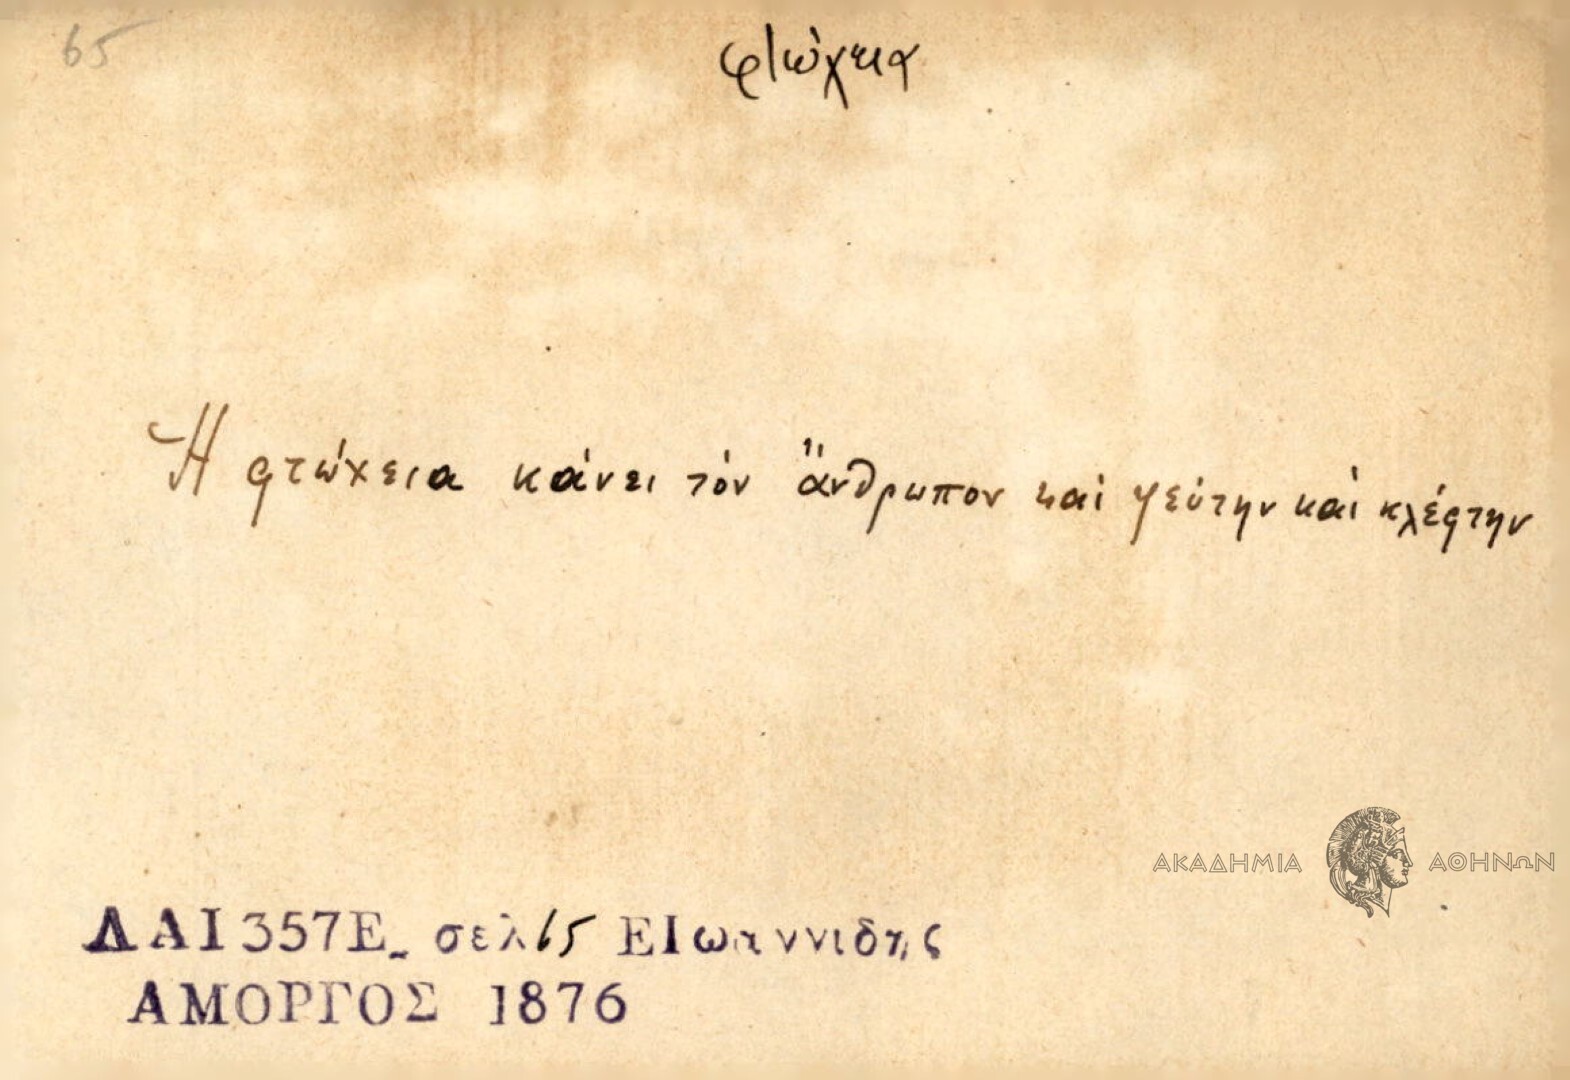 65
φτώχεια
Ἡ φτώχεια κάνει τὸν ἄνθρωπον καὶ ψεύτην καὶ κλέφτην
ΑΚΑΔΗΜΙΑ ΑΘΗΝΩΝ
ΔΑΙ357Ε σελ 65 ΕΙωαννιδης
ΑΜΟΡΓΟΣ 1876